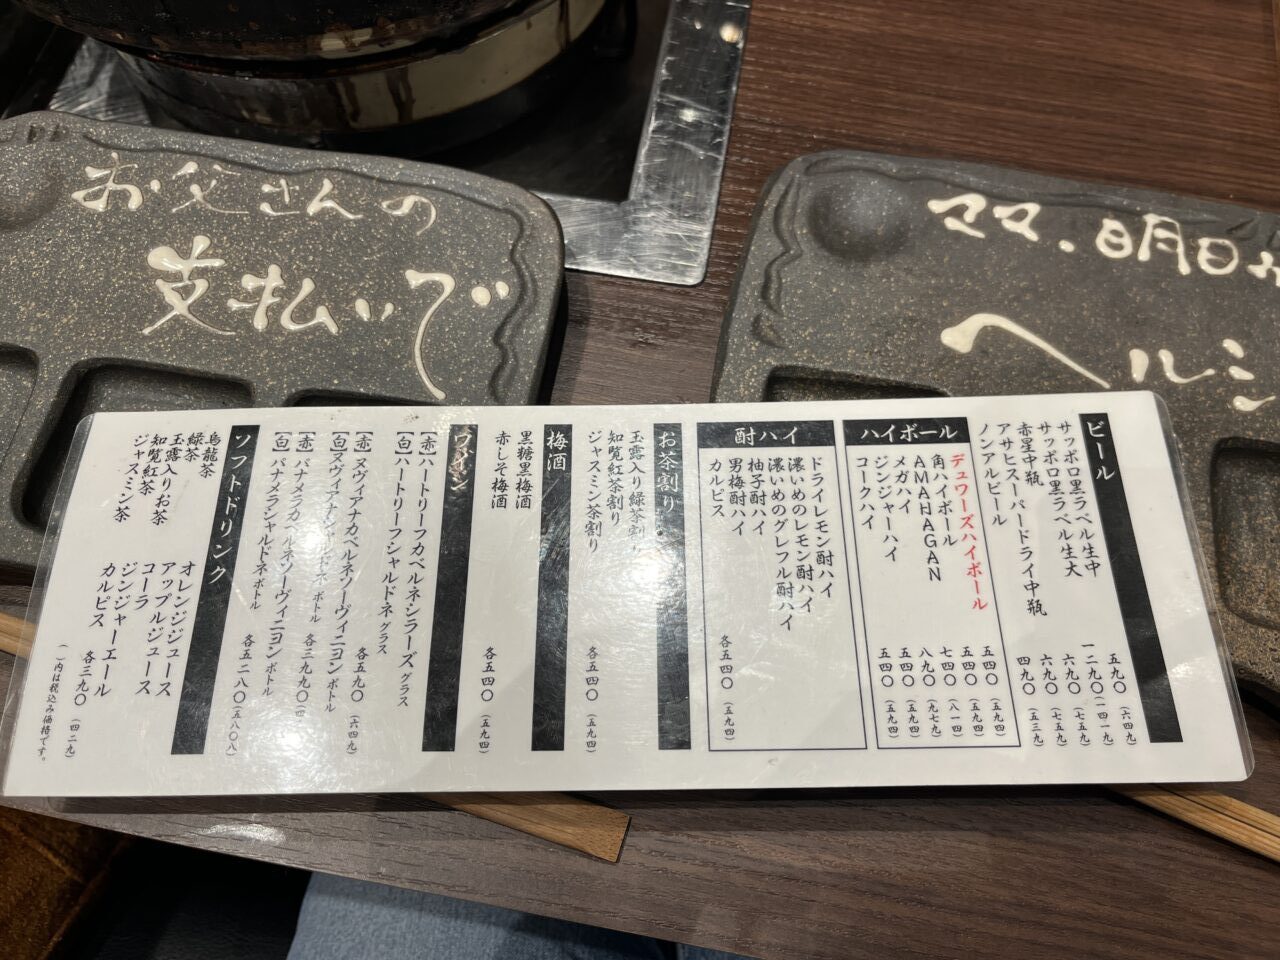 お父さんの
支払いで
ママ、明日から
ヘルシ
ビール
サッポロ黒ラベル生中
五九〇(六四九)
サッポロ黒ラベル生大
一二九〇(一四一九)
赤星中瓶
六九〇(七五九)
アサヒスーパードライ中瓶
六九〇(七五九)
ノンアルビール
四九〇(五三九)
ハイボール
デュワーズハイボール
五四〇(五九四)
角ハイボール
五四〇(五九四)
AMAHAGAN
八九〇(九七九)
メガハイ
七四〇(八一四)
ジンジャーハイ
五四〇(五九四)
コークハイ
五四〇(五九四)
酎ハイ
ドライレモン酎ハイ
濃いめのレモン酎ハイ
濃いめのグレフル酎ハイ
柚子酎ハイ
男梅酎ハイ
カルピス
各五四〇(五九四)
お茶割り
玉露入り緑茶割り
知覧紅茶割り
ジャスミン茶割り
各五四〇(五九四)
梅酒
黒糖黒梅酒
赤しそ梅酒
各五四〇(五九四)
ワイン
【赤】ハートリーフカベルネシラーズ グラス
【白】ハートリーフシャルドネ グラス
各五九〇(六四九)
【赤】ヌヴィアナカベルネソーヴィニヨン ボトル
【白】ヌヴィアナシャルドネ ボトル
各三九九〇(四
【赤】パナメラカベルネソーヴィニヨン ボトル
【白】パナメラシャルドネ ボトル
各五二八〇(五八〇八)
ソフトドリンク
烏龍茶
緑茶
玉露入りお茶
知覧紅茶
ジャスミン茶
オレンジジュース
アップルジュース
コーラ
ジンジャーエール
カルピス
各三九〇(四二九)
( )内は税込み価格です。